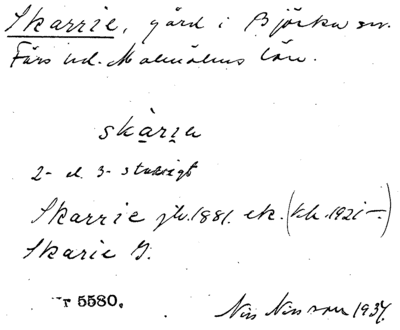 Skarrie, gård i Björka sn.
Färs hd. Malmöhus län.
skàrịu
2- el. 3- stavigt
Skarrie jb. 1881. ek. (kb. 1921-.)
Skarie G.
r 5580.
Nils Nilsson 1937.